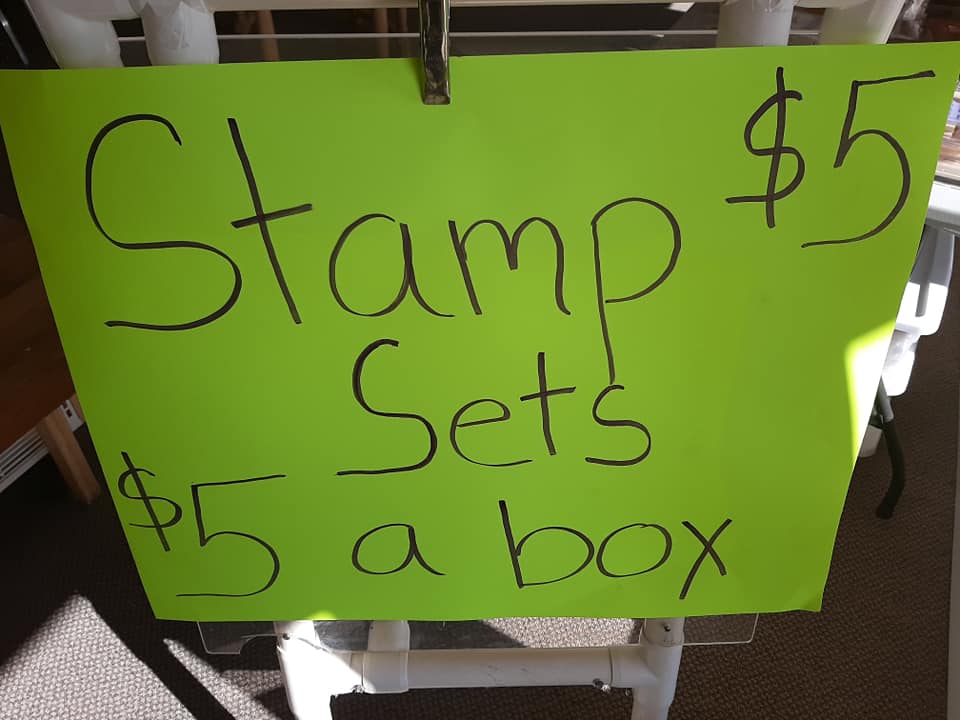 Stamp $5
Sets
$5 a box